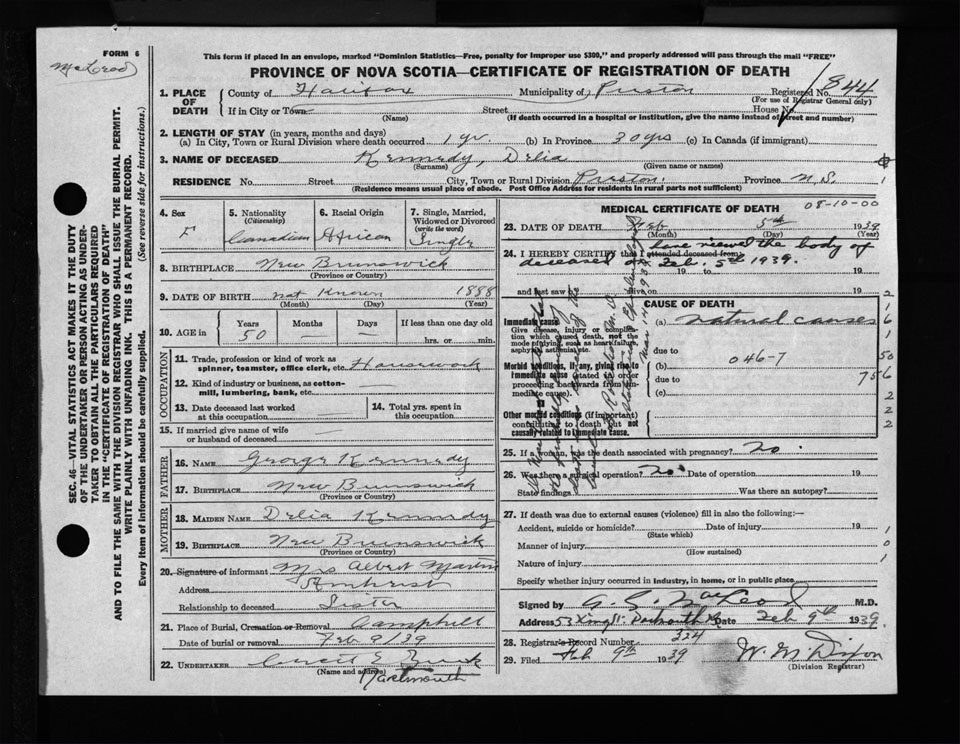 FORM 6
McLeod
This form if placed in an envelope, marked "Dominion Statistics—Free, penalty for improper use $300," and properly addressed will pass through the mail "FREE"
PROVINCE OF NOVA SCOTIA—CERTIFICATE OF REGISTRATION OF DEATH
1. PLACE OF DEATH County of Halifax Municipality of Preston Registered No. 844
(For use of Registrar General only)
If in City or Town (Name) Street House No.
(If death occurred in a hospital or institution, give the name instead of street and number)
2. LENGTH OF STAY (in years, months and days)
(a) In City, Town or Rural Division where death occurred 1 yr. (b) In Province 30 yrs (c) In Canada (if immigrant)
3. NAME OF DECEASED Kennedy, Delia
(Surname) (Given name or names)
RESIDENCE No. Street City, Town or Rural Division Preston Province N.S. 1
(Residence means usual place of abode. Post Office Address for residents in rural parts not sufficient)
4. Sex F
5. Nationality (Citizenship) Canadian
6. Racial Origin African
7. Single, Married, Widowed or Divorced (write the word) Single
8. BIRTHPLACE New Brunswick
(Province or Country)
9. DATE OF BIRTH not Known 1888
(Month) (Day) (Year)
10. AGE in Years Months Days If less than one day old
50 — hrs. or min.
OCCUPATION
11. Trade, profession or kind of work as spinner, teamster, office clerk, etc. Housework
12. Kind of industry or business, as cotton-mill, lumbering, bank, etc.
13. Date deceased last worked at this occupation
14. Total yrs. spent in this occupation
15. If married give name of wife or husband of deceased —
FATHER
16. NAME George Kennedy
17. BIRTHPLACE New Brunswick
(Province or Country)
MOTHER
18. MAIDEN NAME Delia Kennedy
19. BIRTHPLACE New Brunswick
(Province or Country)
20. Signature of informant Mrs Albert Martin
Address Amherst
Relationship to deceased Sister
21. Place of Burial, Cremation or Removal
Date of burial or removal Feb 9/39
22. UNDERTAKER
(Name and address) Dartmouth
MEDICAL CERTIFICATE OF DEATH 08-10-00
23. DATE OF DEATH Feb 5th 1939
(Month) (Day) (Year)
24. I HEREBY CERTIFY that I attended deceased from have viewed the body of
deceased on Feb. 5th 1939. 19 to 19
and last saw alive on 19
CAUSE OF DEATH
Immediate cause
Give disease, injury or complication which caused death, not the mode of dying, such as heart failure, asphyxia, asthenia, etc.
(a) natural causes
due to
Morbid conditions, if any, giving rise to immediate cause (stated in order proceeding backwards from immediate cause).
(b) 046-7
due to
(c)
Other morbid conditions (if important) contributing to death but not causally related to immediate cause.
2
1
6
1
50
756
2
2
2
25. If a woman, was the death associated with pregnancy? No.
26. Was there a surgical operation? No. Date of operation 19
State findings Was there an autopsy?
27. If death was due to external causes (violence) fill in also the following:—
Accident, suicide or homicide? Date of injury 19 1
(State which)
Manner of injury 0
(How sustained)
Nature of injury 1
Specify whether injury occurred in industry, in home, or in public place
Signed by M.D.
Address 53 King St. Dartmouth Date Feb 9th 1939.
28. Registrar's Record Number 324
29. Filed Feb 9th 1939 W. M. Dixon
(Division Registrar)
SEC. 46—VITAL STATISTICS ACT MAKES IT THE DUTY
OF THE UNDERTAKER OR PERSON ACTING AS UNDER-
TAKER TO OBTAIN ALL THE PARTICULARS REQUIRED
IN THE "CERTIFICATE OF REGISTRATION OF DEATH"
AND TO FILE THE SAME WITH THE DIVISION REGISTRAR WHO SHALL ISSUE THE BURIAL PERMIT.
WRITE PLAINLY WITH UNFADING INK. THIS IS A PERMANENT RECORD.
Every item of information should be carefully supplied. (See reverse side for instructions.)